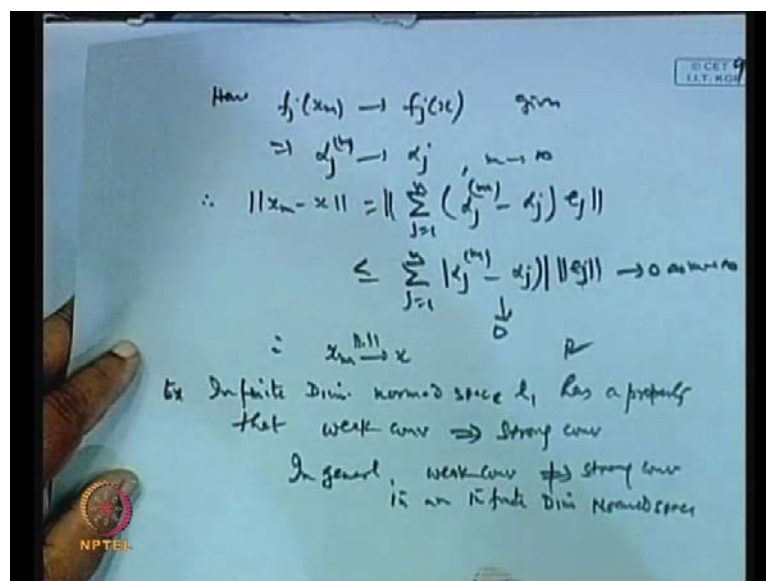 © CET
I.I.T. KGP
9
Hence f_j(x_m) → f_j(x) given
⇒ α_j^(m) → α_j , m → ∞
∴ ||x_m - x|| = || Σ_{j=1}^{n} (α_j^(m) - α_j) e_j ||
≤ Σ_{j=1}^{n} |α_j^(m) - α_j)| ||e_j|| → 0 as m → ∞
↓
0
∴ x_m →^{||.||} x
Ex Infinite Dim. normed space l_1 has a property
that weak conv ⇒ Strong conv
In general, weak conv ⇏ strong conv
in an infinite Dim Normed space
NPTEL